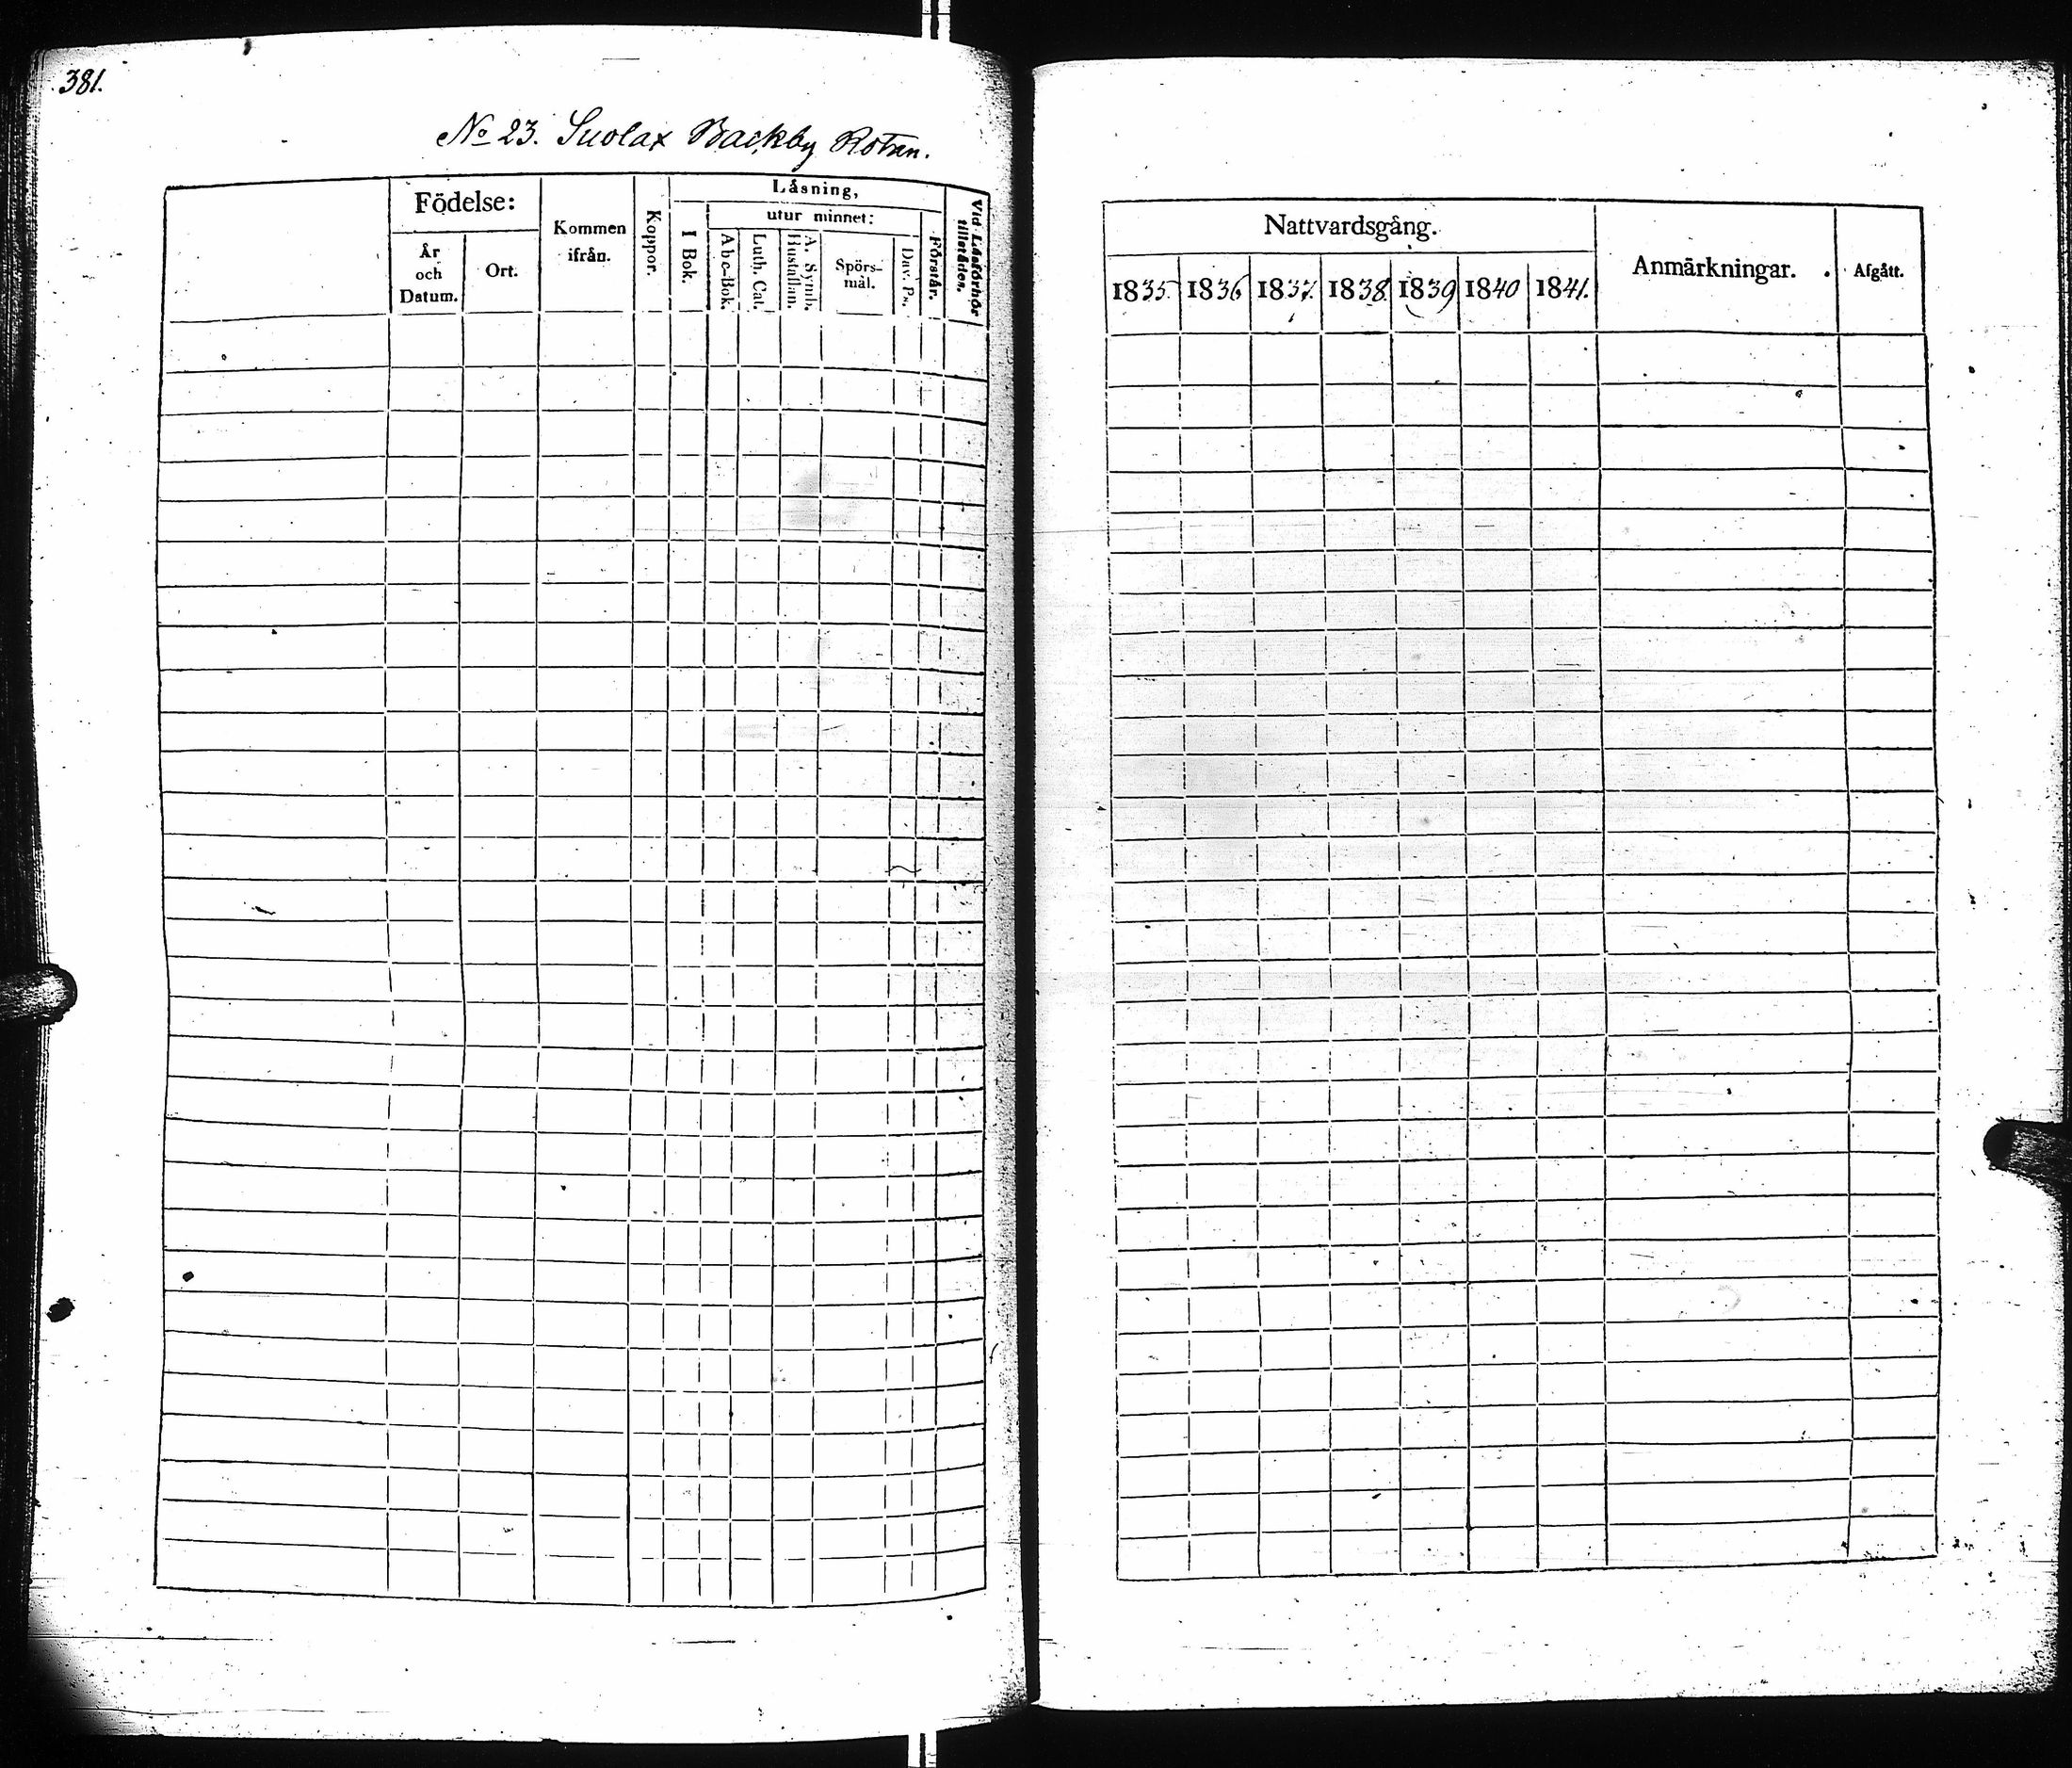 381.
No 23. Suolax Backby Rotan.
Födelse:
År och Datum.
Ort.
Kommen ifrån.
Koppor.
Läsning,
I Bok.
utur minnet:
Abc-Bok.
Luth. Cat.
A. Symb. Hustaflan.
Spörs-
mål.
Dav. Ps.
Förstår.
Vid Läsförhör tillstådes.
Nattvardsgång.
1835. 1836 1837. 1838. 1839 1840 1841.
Anmärkningar.
Afgått.